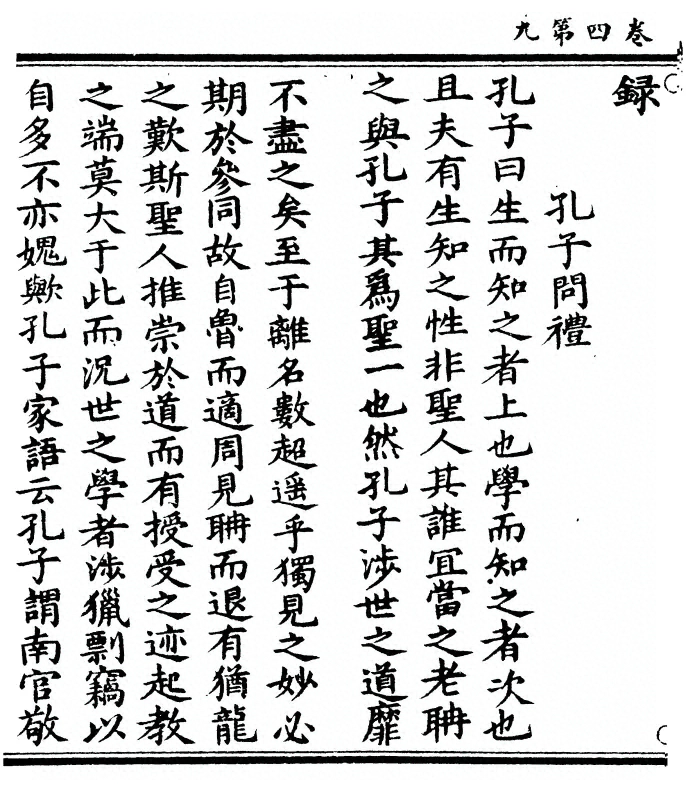 九第四卷
録
孔子問禮
孔子曰生而知之者上也學而知之者次也
且夫有生知之性非聖人其誰冝當之老聃
之與孔子其爲聖一也然孔子渉世之道靡
不盡之矣至于離名數超遥乎獨見之妙必
期於參同故自魯而適周見聃而退有猶龍
之歎斯聖人推崇於道而有授受之迹起教
之端莫大于此而況世之學者渉獵剽竊以
自多不亦媿歟孔子家語云孔子謂南宫敬